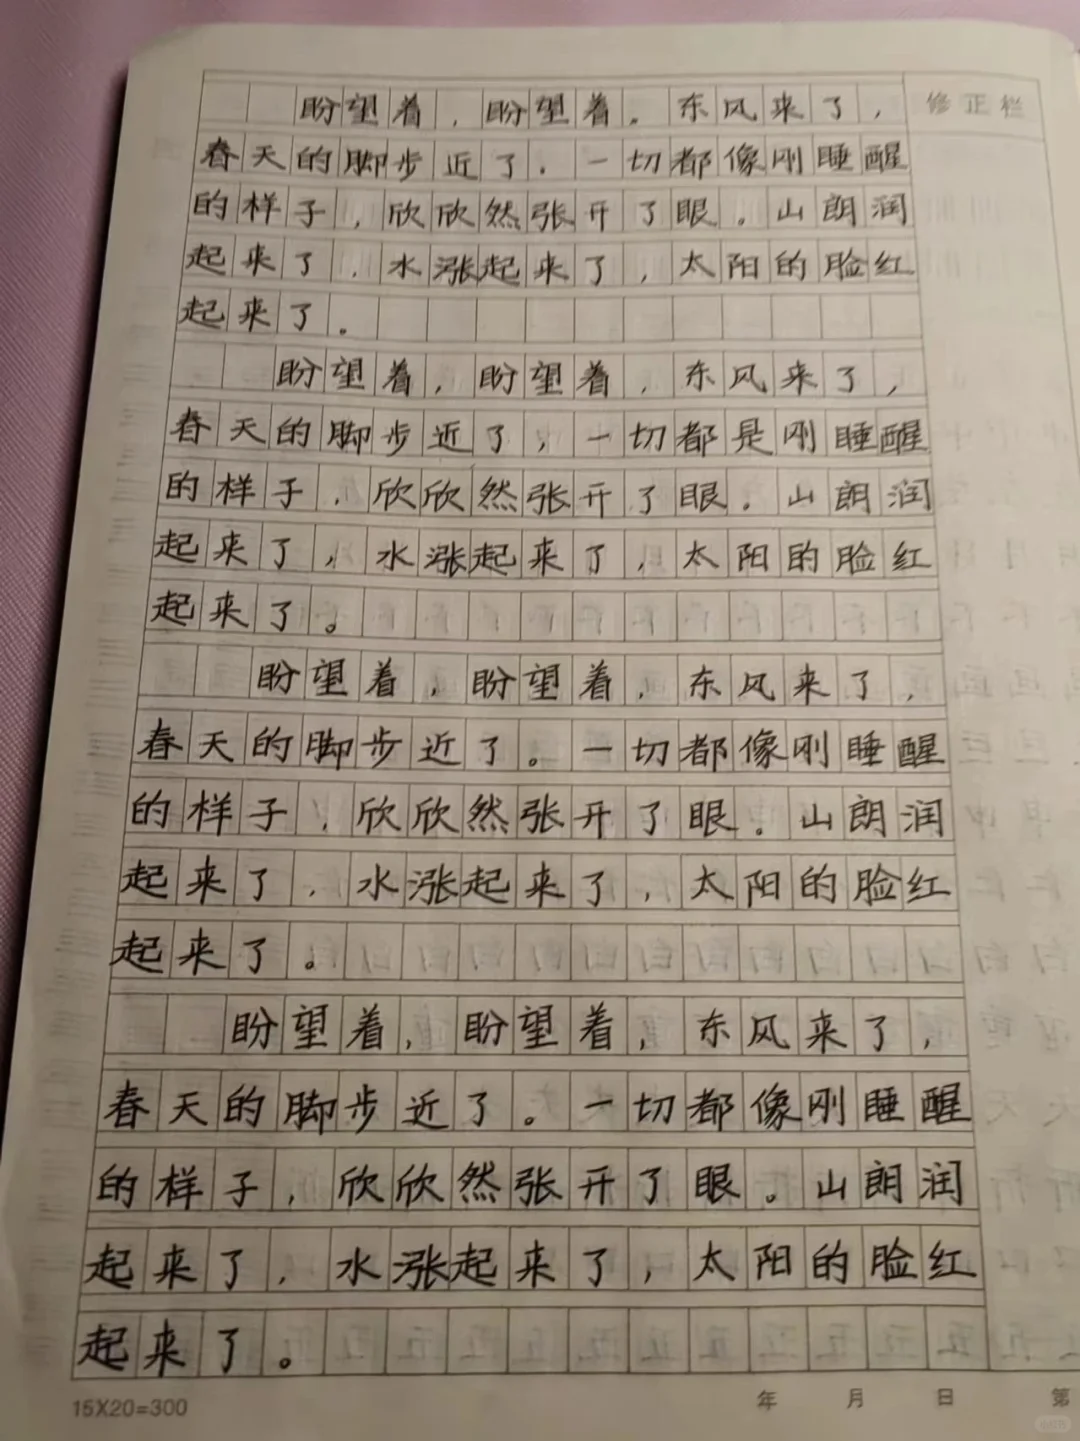 盼望着，盼望着。东风来了，
修正栏
春天的脚步近了．一切都像刚睡醒
的样子，欣欣然张开了眼。山朗润
起来了，水涨起来了，太阳的脸红
起来了。
盼望着，盼望着，东风来了，
春天的脚步近了，一切都是刚睡醒
的样子，欣欣然张开了眼。山朗润
起来了，水涨起来了，太阳的脸红
起来了。
盼望着，盼望着，东风来了，
春天的脚步近了。一切都像刚睡醒
的样子，欣欣然张开了眼。山朗润
起来了，水涨起来了，太阳的脸红
起来了。
盼望着，盼望着，东风来了，
春天的脚步近了。一切都像刚睡醒
的样子，欣欣然张开了眼。山朗润
起来了，水涨起来了，太阳的脸红
起来了。
15X20=300
年 月 日 第